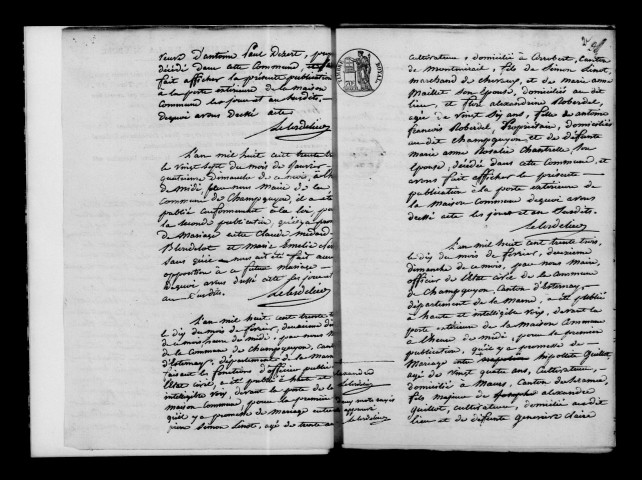 veuve d'antoine Paul Dezert,
décédé dans cette Commune, et
fait afficher la présente publication
à la porte extérieure de la maison
Commune les jour et an susdits,
dequoi avons dressé acte
Lebedelieu
L'an mil huit cent trente
le vingt sept du mois de Janvier
quatrième dimanche de ce mois, à
de midi, par nous Maire de la
commune de Champguyon, il a été
publié conformément à la loi
la seconde publication,
de Mariage entre Claude médard
Blondelot et Marie Emelie
sans qu'il nous ait été fait aucune
opposition à ce futur mariage
dequoi avons dressé acte les jour et
an susdits.
Lebedelieu
L'an mil huit cent trente
le dix du mois de février, deuxième
de ce mois, heure de midi, par nous
de la Commune de Champguyon,
d'Esternay, département de la Marne
faisant les fonctions d'officier public
l'état civil, a été publié à haute et
intelligible voix, devant la porte de la
maison Commune pour la première
qu'il y a promesse de mariage entre
Simon Linot, agé de trente
alexandre
deux mots rayés
approuvé
cultivateur, domicilié à
de montmirail, fils de Simon Linot,
marchand de chevaux, et de marie anne
Maillet son épouse, domiciliés au dit
lieu, et flore alexandrine Roberdel,
agée de vingt six ans, fille de antoine
françois Roberdel, Propriétaire, domiciliés
au dit champguyon, et de défunte
marie anne Rosalie Chantrelle son
épouse, décédée dans cette Commune, et
avons fait afficher la présente
publication à la porte extérieure de
la Maison Commune dequoi avons
dressé acte les jour et an susdits.
Lebedelieu
L'an mil huit cent trente trois,
le dix du mois de février, deuxième
dimanche de ce mois, par nous Maire,
officier de l'état civil de la Commune
de Champguyon Canton d'Esternay,
département de la Marne, a été publié
à haute et intelligible voix, devant la
porte extérieure de la Maison Commune
à l'heure de midi, pour la première
publication, qu'il y a promesse de
Mariage entre hipolite Guillot,
agé de vingt quatre ans, Cultivateur,
domicilié à
fils majeur de alexandre
Guillot, cultivateur, domicilié au dit
lieu et de défunte geneviève Claire